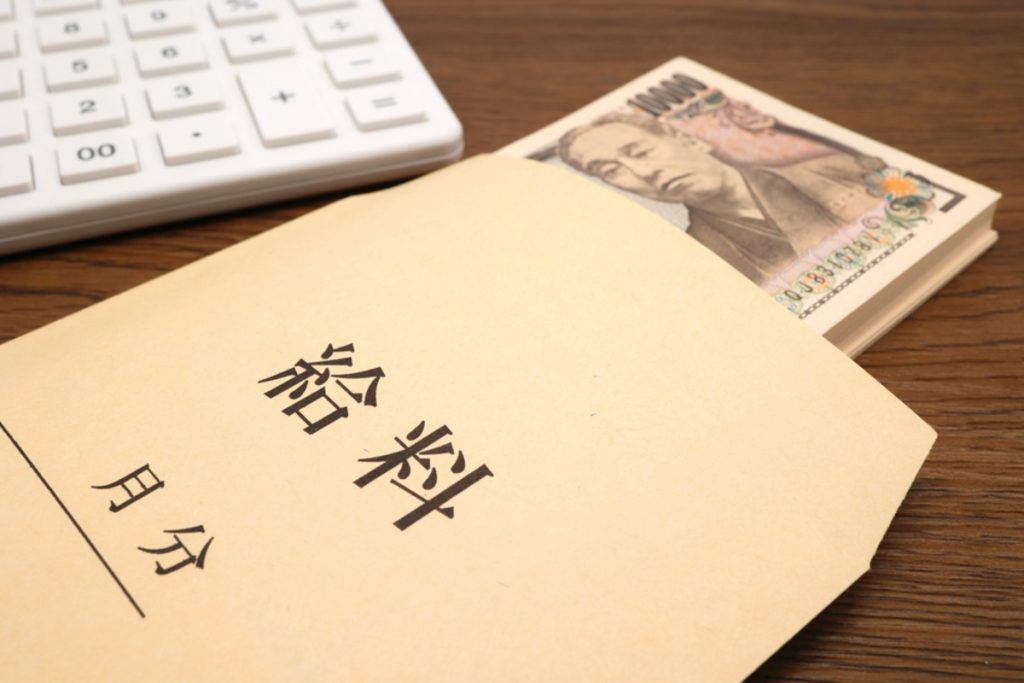 %
8
9
×
÷
5
6
−
2
3
+
=
00
.
10000
給料
月分